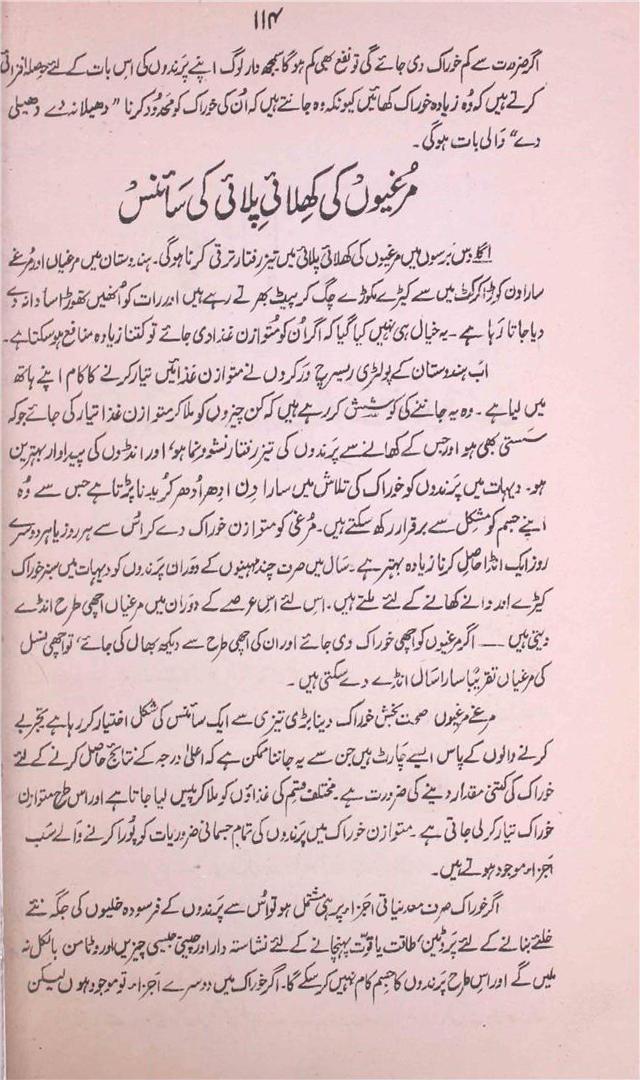 ۱۱۴
اگر ضرورت سے کم خوراک دی جائے گی تو نفع بھی کم ہوگا سمجھ دار لوگ اپنے پرندوں کی اس بات کے لئے حوصلہ افزائی
کرتے ہیں کہ وُہ زیادہ خوراک کھائیں کیونکہ وہ جانتے ہیں کہ اُن کی خوراک کو محدود کرنا "دھیلا نہ دے دھیلی
دے" والی بات ہوگی۔
مُرغیوں کی کھِلائی پلائی کی سائنس
اگلے دس برسوں میں مرغیوں کی کھلائی پلائی میں تیز رفتار ترقی کرنا ہوگی۔ ہندوستان میں مرغیاں اور مُرغے
سارا دن کوڑا کرکٹ میں سے کیڑے مکوڑے چگ کر پیٹ بھرتے رہے ہیں اور رات کو اُنھیں تھوڑا سا دانہ دے
دیا جاتا رہا ہے۔ یہ خیال ہی نہیں کیا گیا کہ اگر اُن کو متوازن غذا دی جائے تو کتنا زیادہ منافع ہوسکتا ہے۔
اب ہندوستان کے پولٹری ریسرچ ورکروں نے متوازن غذائیں تیار کرنے کا کام اپنے ہاتھ
میں لیا ہے۔ وہ یہ جاننے کی کوشش کر رہے ہیں کہ کن چیزوں کو ملا کر متوازن غذا تیار کی جائے جو کہ
سستی بھی ہو اور جس کے کھانے سے پرندوں کی تیز رفتار نشوونما ہو، اور انڈوں کی پیداوار بہترین
ہو۔ دیہات میں پرندوں کو خوراک کی تلاش میں سارا دن ادھر ادھر کریدنا پڑتا ہے جس سے وُہ
اپنے جسم کو مشکل سے برقرار رکھ سکتے ہیں۔ مُرغی کو متوازن خوراک دے کر اُس سے ہر روز یا ہر دوسرے
روز ایک انڈا حاصل کرنا زیادہ بہتر ہے۔ سال میں صرف چند مہینوں کے دوران پرندوں کو دیہات میں سبز خوراک
کیڑے اور دانے کھانے کے لئے ملتے ہیں۔ اس لئے اس عرصے کے دَوران میں مرغیاں اچھی طرح انڈے
دیتی ہیں —— اگر مرغیوں کو اچھی خوراک دی جائے اور ان کی اچھی طرح سے دیکھ بھال کی جائے، تو اچھی نسل
کی مرغیاں تقریباً سارا سال انڈے دے سکتی ہیں۔
مرغے مرغیوں صحت بخش خوراک دینا بڑی تیزی سے ایک سائنس کی شکل اختیار کر رہا ہے تجربے
کرنے والوں کے پاس ایسے چارٹ ہیں جن سے یہ جاننا ممکن ہے کہ اعلیٰ درجہ کے نتائج حاصل کرنے کے لئے
خوراک کی کتنی مقدار دینے کی ضرورت ہے۔ مختلف قسم کی غذاؤں کو ملا کر پیس لیا جاتا ہے اور اس طرح متوازن
خوراک تیار کرلی جاتی ہے۔ متوازن خوراک میں پرندوں کی تمام جسمانی ضروریات کو پُورا کرنے والے سَب
اجزاء موجود ہوتے ہیں۔
اگر خوراک صرف معدنیاتی اجزاء پر ہی مشتمل ہو تو اُس سے پرندوں کے فرسودہ خلیوں کی جگہ نئے
خلئے بنانے کے لئے پروٹین، طاقت یا قوّت پہنچانے کے لئے نشاستہ دار اور چربی جیسی چیزیں اور وٹامن بالکل نہ
ملیں گے اور اس طرح پرندوں کا جسم کام نہیں کرسکے گا۔ اگر خوراک میں دوسرے اجزاء تو موجود ہوں لیکن